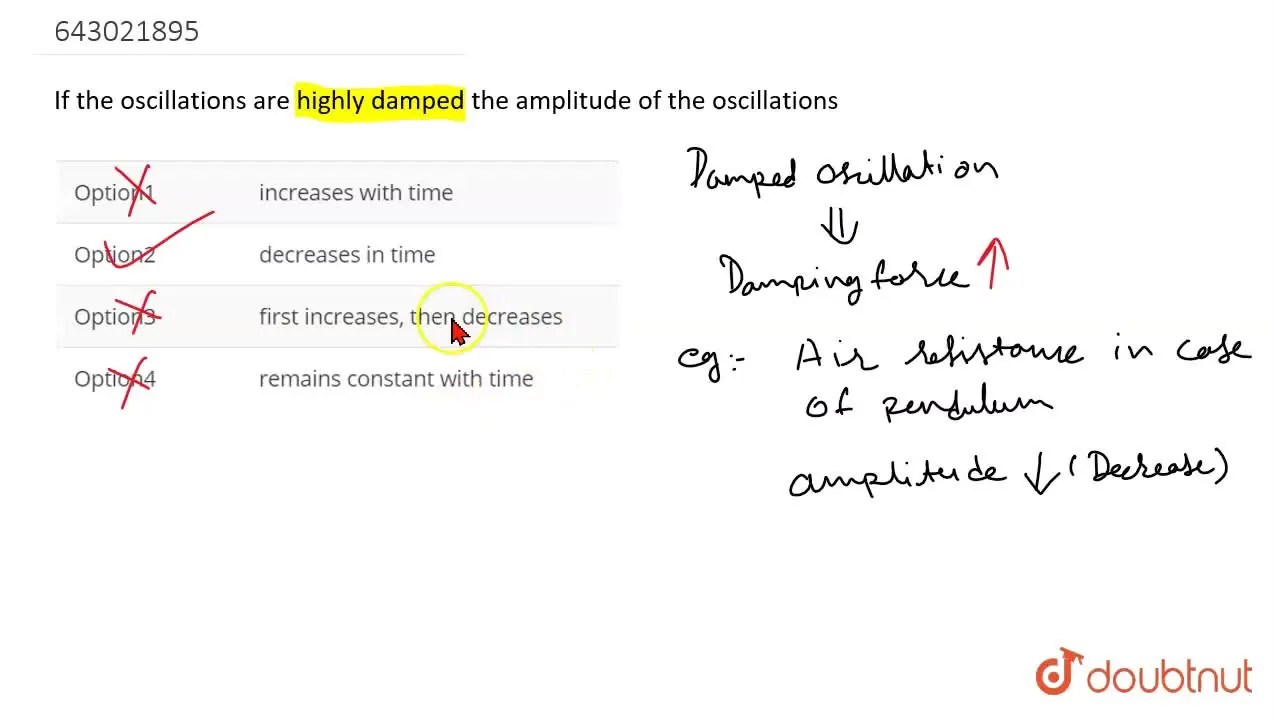 643021895
If the oscillations are highly damped the amplitude of the oscillations
Option1 increases with time
Option2 decreases in time
Option3 first increases, then decreases
Option4 remains constant with time
Damped oscillation
⇓
Damping force ↑
eg:- Air resistance in case
of pendulum
amplitude ↓ (Decrease)
doubtnut